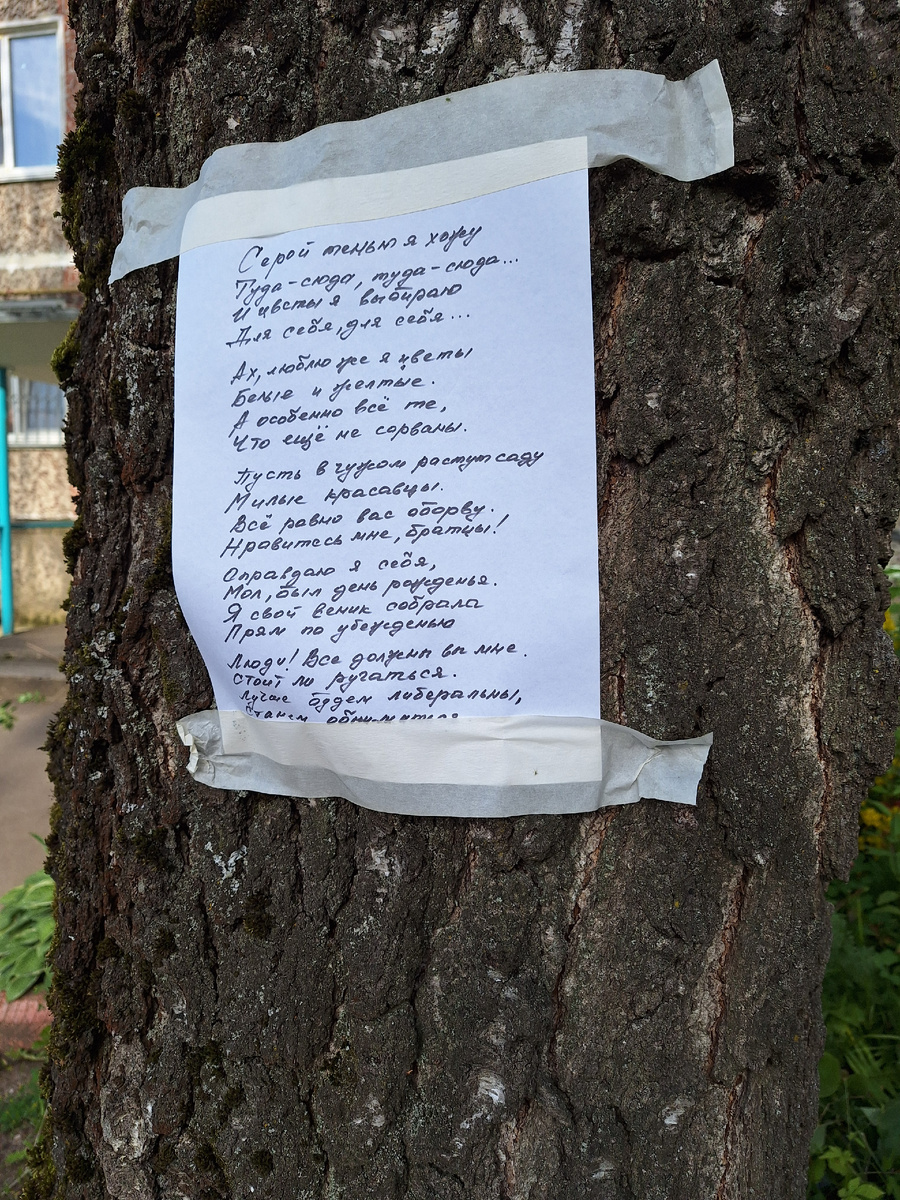 Серой тенью я хожу
Туда-сюда, туда-сюда...
И цветы я выбираю
Для себя, для себя...
Ах, люблю же я цветы
Белые и желтые.
А особенно всё те,
Что ещё не сорваны.
Пусть в чужом растут саду
Милые красавцы.
Всё равно вас оборву.
Нравитесь мне, братцы!
Оправдаю я себя,
Мол, был день рожденья.
Я свой веник собрала
Прям по убежденью
Люди! Все должны вы мне.
Стоит ли ругаться.
Лучше будем либеральны,
Станем обниматься